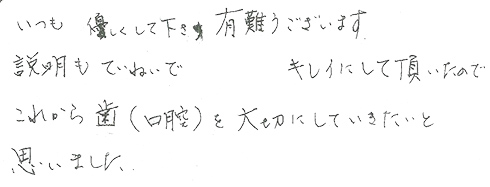 いつも 優しくして下さり 有難うございます
説明もていねいで キレイにして頂いたので
これから歯(口腔)を大切にしていきたいと
思いました。